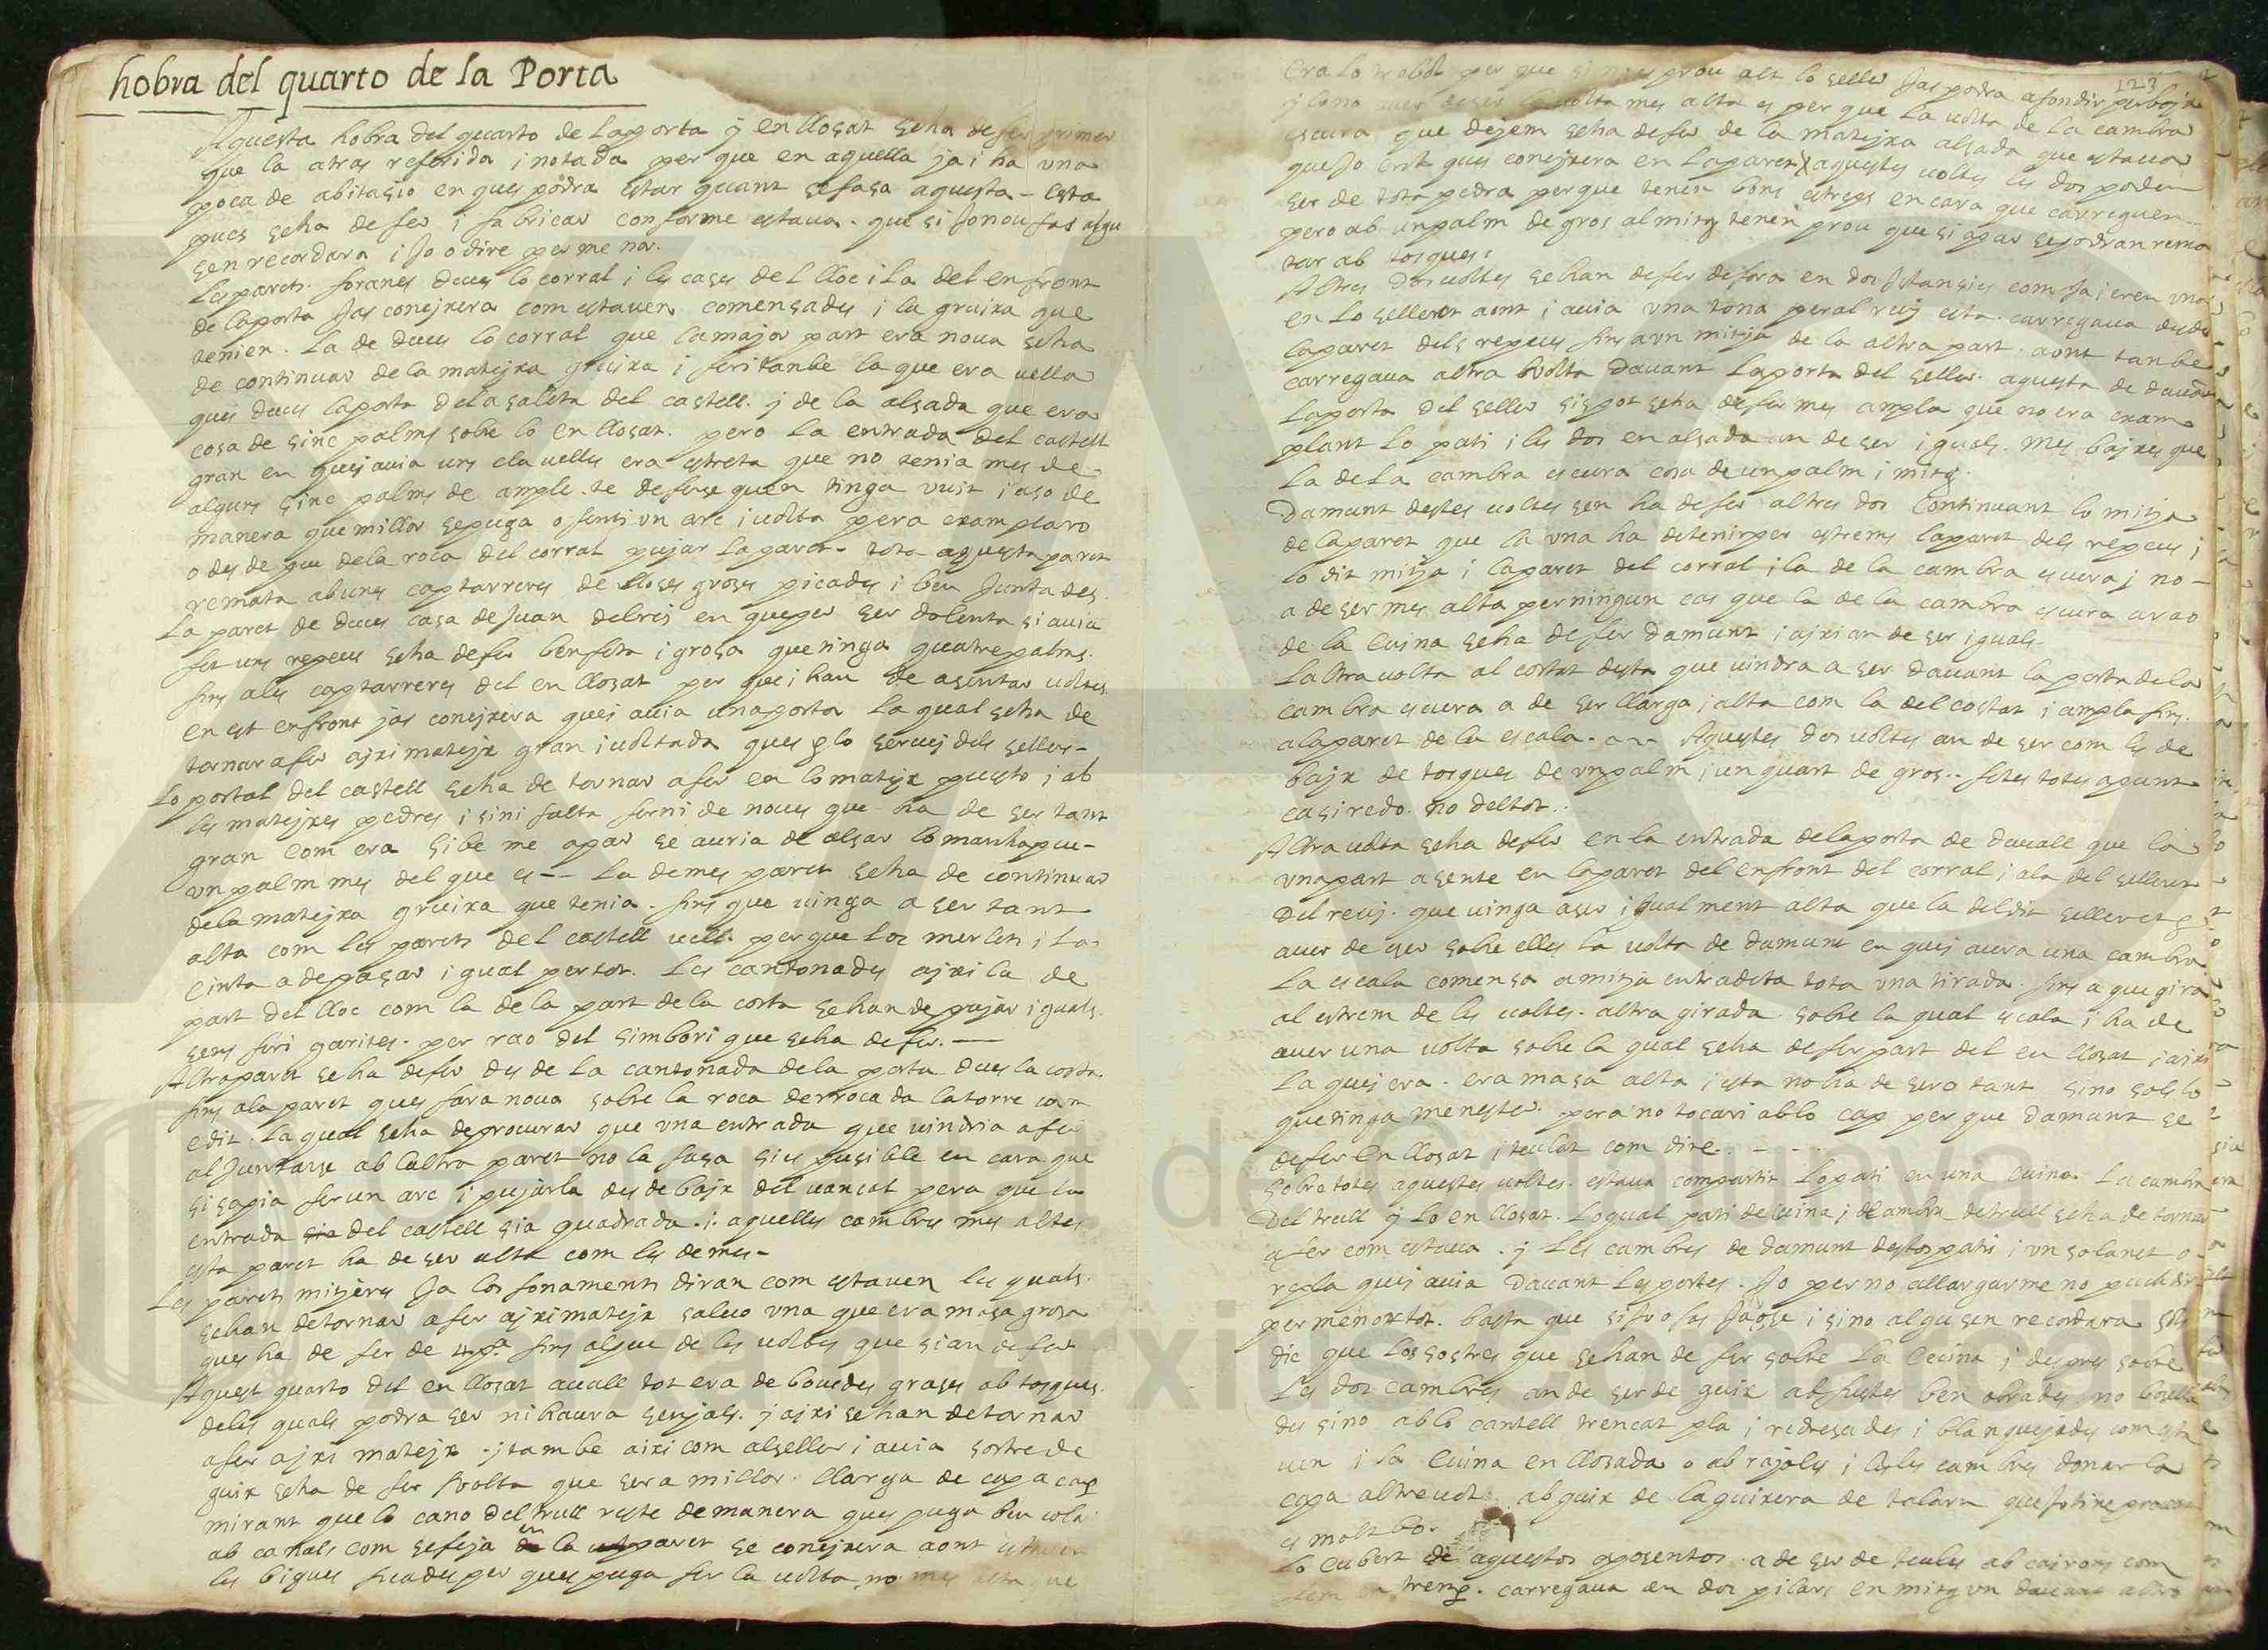 hobra del quarto de la Porta
Aquesta hobra del quarto de la porta y enllosat seha defer primer
que la atras referida i notada per que en aquella ja i ha una
poca de abitasio en ques podra estar quant sefasa aquesta - esta
pues seha de fer i fabricar conforme estava. que si jo nou fas algu
sen recordara i jo o dire per menor.
Les parets foranes deves lo corral i les cases del lloc i la del enfront
de laporta jas conejxera com estaven comensades i la gruixa que
tenien. La de deves lo corral que lamajor part era nova seha
de continuar de la matejxa gruixa i feritanbe la que era vella
ques deves laporta delasaleta del castell. y de la alsada que era
cosa de sinc palms sobre lo enllosat. pero la entrada del castell
gran en quejavia uns clavells era estreta que no tenia mes de
alguns sinc palms de ample. te deferse quen tinga vuit i aso de
manera que millor sepuga o fentiun arc i volta pera examplaro
o desde peu dela roca del corral pujar la paret. tota aquesta paret
remata abunes captarreres de lloses groses picades i ben juntades.
La paret de deves casa de Juan delrej en queper ser dolenta si avia
fet uns repeus seha defer benfeta i grosa que tinga quatre palms.
fins ales captarreres del enllosat per que i han de asentar voltes
en est enfront jas conejxera quej avia unaporta la qual seha de
tornar afer ajximatejx gran i voltada ques p lo servej dels sellers-
Lo portal del castell seha de tornar afer en lo matejx puesto i ab
les matejxes pedres i sini falta ferni de noves que ha de ser tant
gran com era sibe me apar se auria de alsar lo manhapeu-
un palm mes del que es-- La demes paret seha de continuar
dela matejxa gruixa que tenia. fins que vinga a ser tant
alta com les parets del castell vell. perque los merlets i la
cinta adepasar igual per tot. Les cantonades ajxi la de
part del lloc com la de la part de la costa sehan de pujar iguals.
sens feri garites. per rao del simbori que seha defer.—
Altra paret seha defer des de la cantonada dela porta deves la costa.
fins ala paret ques fara nova sobre la roca derrocada latorre com
e dit. La qual seha deprocurar que una entrada que vindria afer
al juntarse ab laltra paret no la fasa sies posible en cara que
si sapia fer un arc i pujarla des de bajx del vancat pera que la
entrada sia del castell sia quadrada. i. aquelles cambres mes altes
esta paret ha de ser alta com les demes-
Les parets mitjeres ja los fonaments diran com estaven les quals.
sehan detornar afer ajximatejx salvo una que era masa grosa
ques ha de fer de fins alpeu de les voltes que sian defer
Aquest quarto del enllosat avall tot era de bovedes grases ab tosques.
deles quals podra ser nihaura senjals. j ajxi sehan detornar
afer ajxi matejx. j tambe aixi com alseller i avia sostre de
guix seha de fer volta que sera millor. llarga de cap a cap
mirant que lo cano del trull reste demanera ques puga ben colar
ab canals com sefeja en la paret se conejxera aont estaven
les bigues ficades per ques puga fer la volta no mes alta que
123
era lo trebol per que si mes prou alt lo seller jas podra afondir perbajx
j lo no aver deser la volta mes alta es per que la volta de la cambra
escura que dejem seha defer de la matejxa alsada que estava
quejo crec ques conejxera en laparet) aquestes voltes les dos poden
ser de tota pedra perque tenen bons estreps encara que carreguen
pero ab unpalm de gros al mitg tenen prou que si apar sepodran rema
tar ab tosques.
Altres dos voltes sehan defer defora en dos Istansies com ja i eren una
en lo selleret aont i avia una tona peral rej esta. carregava desde
laparet dels repeus fins aun mitja de la altra part. aont tanbe
carregava altra volta davant laporta del seller. aquesta de davant
laporta del seller sispot seha defer mes ampla que no era exam
plant lo pati i les dos en alsada an de ser iguals. mes bajxes que
la de la cambra escura cosa de un palm i mitg.
Damunt destes voltes sen ha defer altres dos Continuant lo mitja
de laparet que la una ha detenirper estrems laparet dels repeus i
lo dit mitja i laparet del corral i la de la cambra escura j no-
a de ser mes alta per ningun cas que la de la cambra escura arao
de la Cuina seha defer damunt i ajxi an de ser iguals.
Laltra volta al costat desta que vindra a ser davant la porta dela
cambra escura a de ser llarga i alta com la del costat i ampla fins.
alaparet de la escala. Aquestes dos voltes an de ser com les de
bajx de tosques de unpalm i un quart de gros.. fetes totes apunt
casi redo. no deltot..
Altra volta seha defer en la entrada delaporta de davall que la
una part asente en laparet del enfront del corral i ala del selleret
del reuj. que vinga aser igualment alta que la deldit selleret p
aver de ser sobre elles la volta de damunt en quej avera una cambra
La escala comensa amitja entradeta tota una tirada. fins a que gira
al estrem de les voltes. altra girada. sobre la qual escala i ha de
aver una volta sobre la qual seha defer part del enllosat i ajxi
la quej era. era masa alta i esta noha de sero tant sino sols lo
que tinga menester. pera no tocari ablo cap per que damunt se
defer Enllosat i teulat com dire. . - . .
Sobre totes aquestes voltes. estava compartit lo pati en una cuina. La cambra
del trull y lo enllosat. Loqual pati decuina j de cambra detrull seha de tornar
afer com estava. j les cambres de damunt destos patis i un solanet o
repla quej avia davant les portes. Jo per no allargarme no puch dir
per menor tot. basta que sijo o fas ja ose i sino algu sen recordara sols
dic que los sostres que sehan de fer sobre la Cuina i despres sobre
les dos cambres an de ser de guix ab fustes ben obrades no bovella
des sino ablo cantell trencat pla i redresades i blanquejades com esta
ven i la Cuina enllosada o ab rajoles i lesles cambres donar la
copa altrevolta ab guix de la guixera de talarn que
es molt bo.
Lo Cubert de aquestos aposentos. a de ser de teules ab cairons com
tremp. carregava en dos pilars en mitg un davant altre